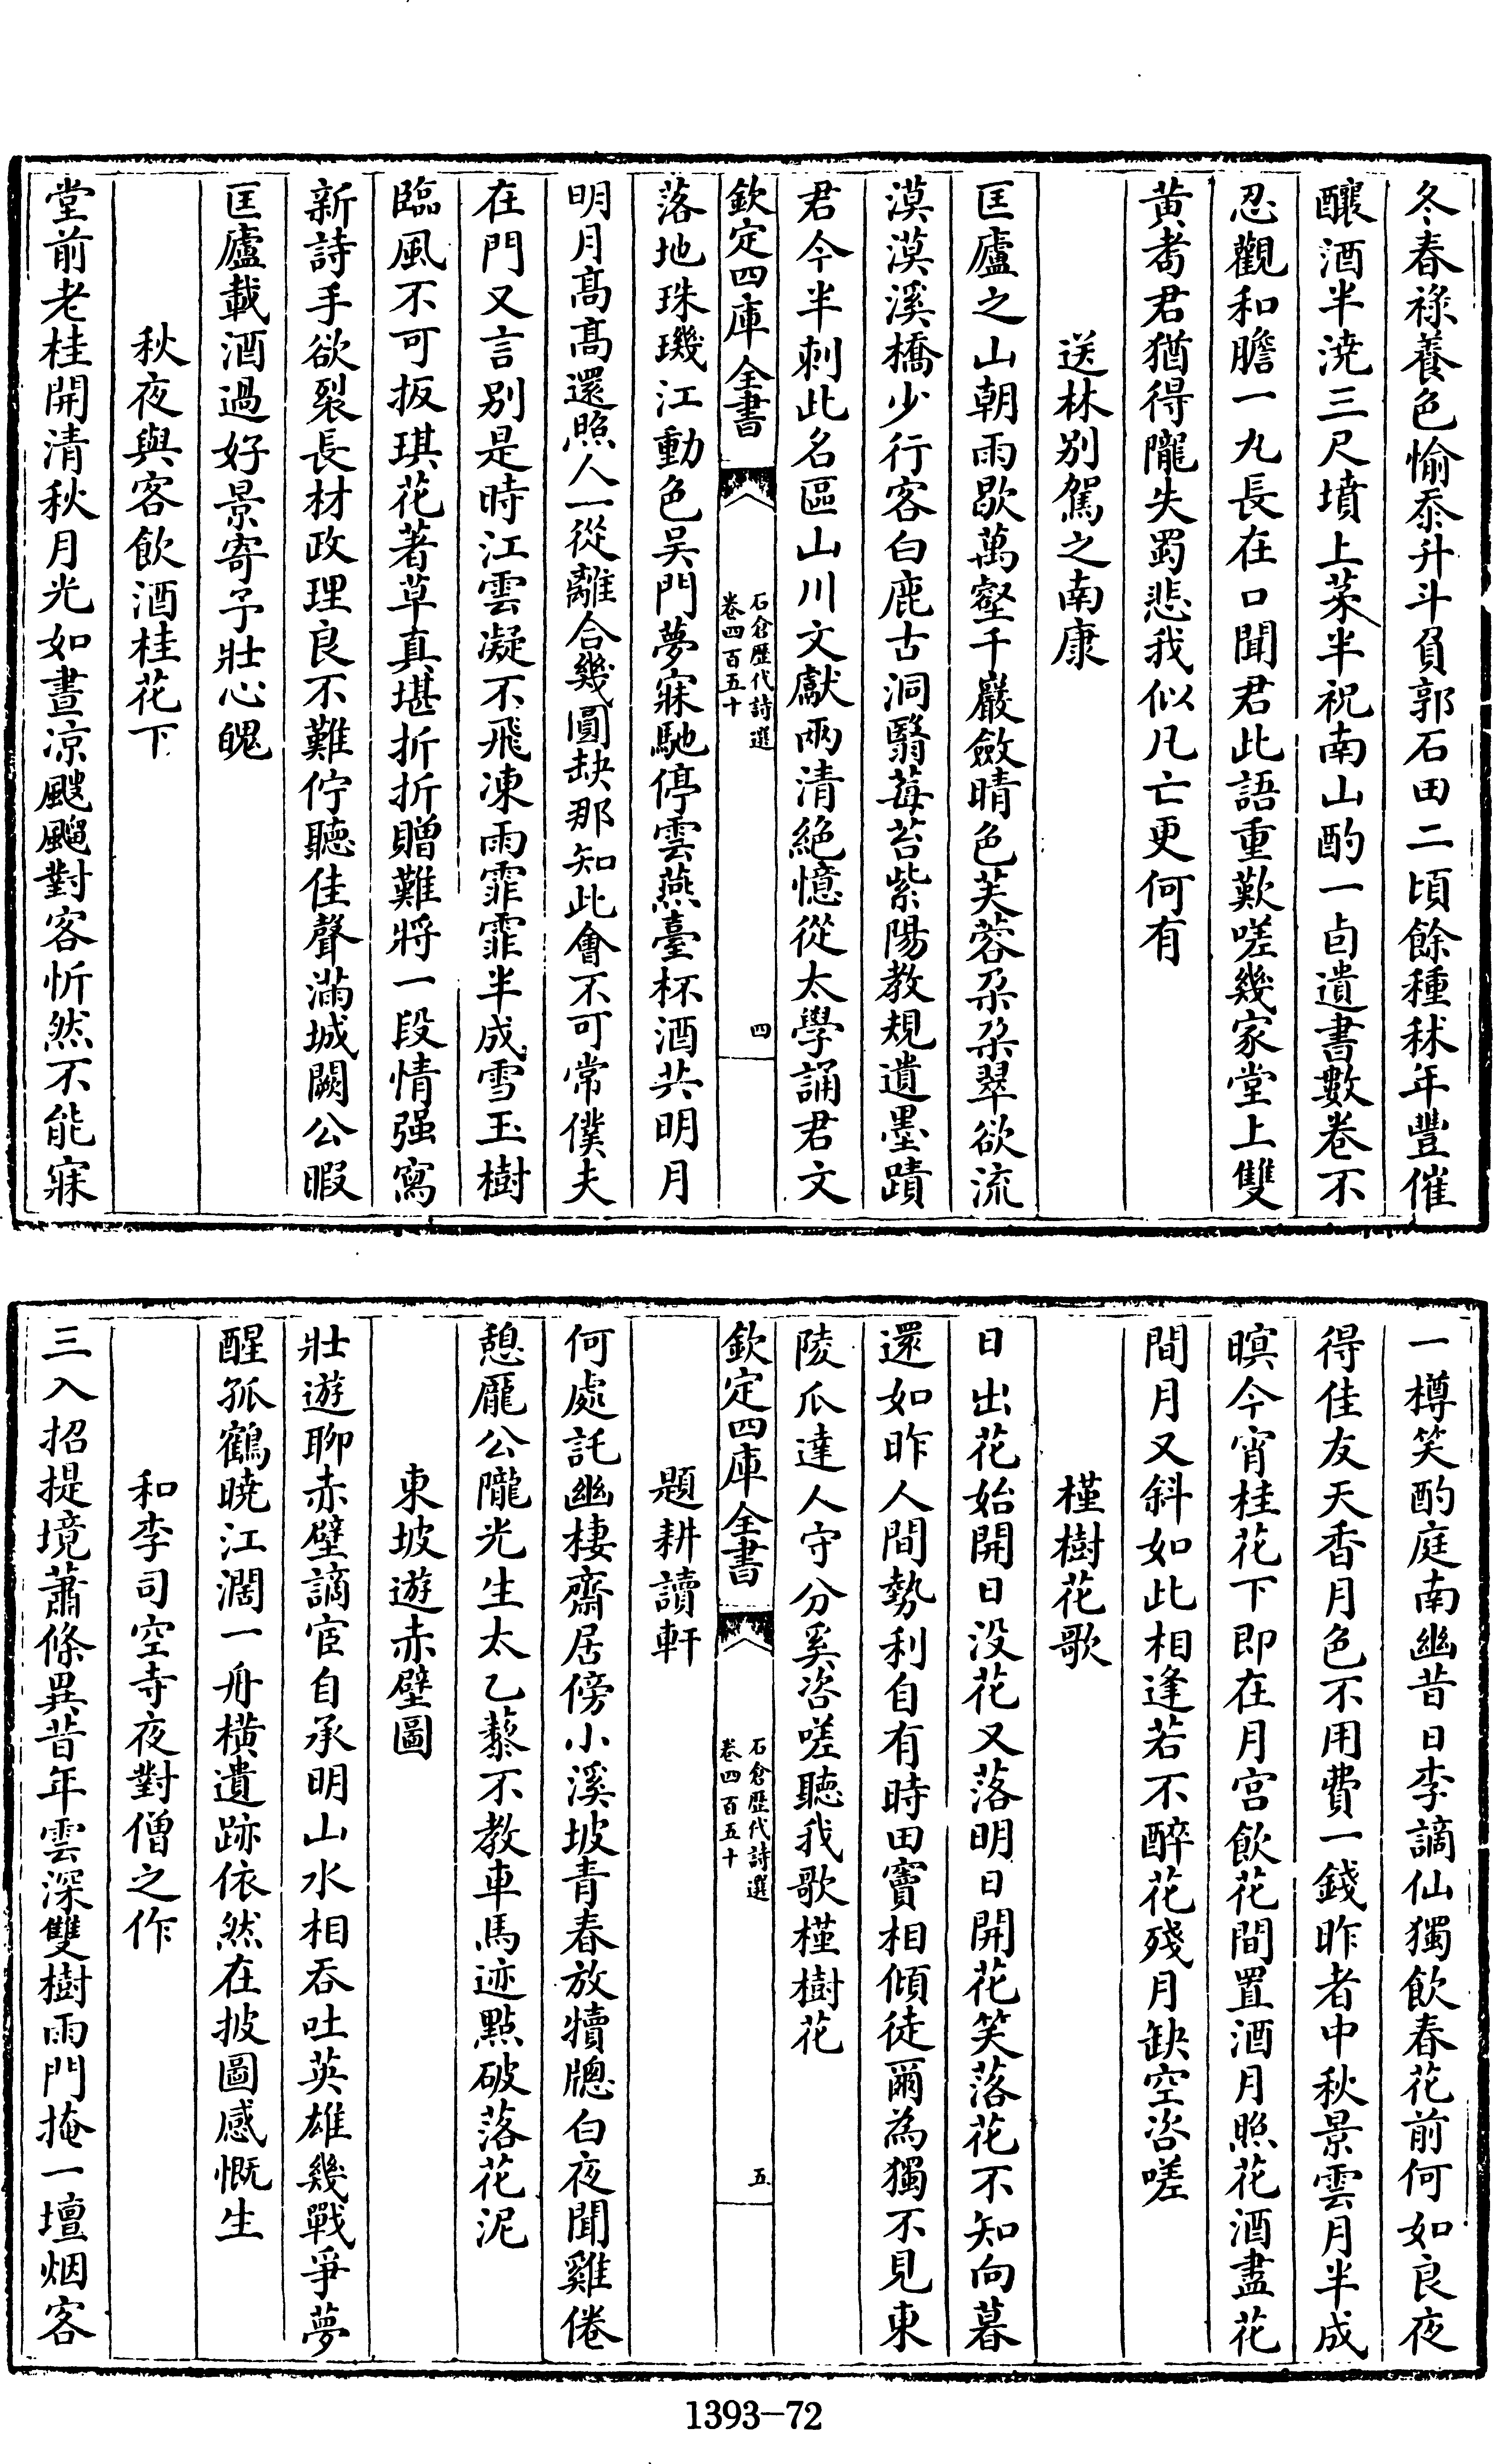 冬春祿養色愉忝升斗負郭石田二頃餘種秫年豐催
釀酒半澆三尺墳上茶半祝南山酌一卣遺書數卷不
忍觀和膽一丸長在口聞君此語重歎嗟幾家堂上雙
黄耉君猶得隴失蜀悲我似凡亡更何有
送林别駕之南康
匡廬之山朝雨歇萬壑千巖斂晴色芙蓉朶朶翠欲流
漠漠溪橋少行客白鹿古洞翳莓苔紫陽教規遺墨蹟
君今半刺此名區山川文獻兩清絶憶從太學誦君文
欽定四庫全書
石倉歴代詩選
卷四百五十
四
落地珠璣江動色吳門夢寐馳停雲燕臺杯酒共明月
明月高高還照人一從離合幾圓缺那知此會不可常僕夫
在門又言别是時江雲凝不飛凍雨霏霏半成雪玉樹
臨風不可扳琪花著草真堪折折贈難將一段情强寫
新詩手欲裂長材政理良不難佇聽佳聲滿城闕公暇
匡廬載酒過好景寄予壯心魄
秋夜與客飲酒桂花下
堂前老桂開清秋月光如晝凉颼颼對客忻然不能寐
一樽笑酌庭南幽昔日李謫仙獨飲春花前何如良夜
得佳友天香月色不用費一錢昨者中秋景雲月半成
暝今宵桂花下即在月宫飲花間置酒月照花酒盡花
間月又斜如此相逢若不醉花殘月缺空咨嗟
槿樹花歌
日出花始開日没花又落明日日開花笑落花不知向暮
還如昨人間勢利自有時田竇相傾徒爾為獨不見東
陵瓜達人守分奚咨嗟聽我歌槿樹花
欽定四庫全書
石倉歴代詩選
卷四百五十
五
題耕讀軒
何處託幽棲齋居傍小溪坡青春放犢牕白夜聞雞倦
憩龎公隴光生太乙藜不教車馬迹點破落花泥
東坡遊赤壁圖
壯遊聊赤壁謫宦自承明山水相吞吐英雄幾戰爭夢
醒孤鶴曉江濶一舟橫遺跡依然在披圖感慨生
和李司空寺夜對僧之作
三入招提境蕭條異昔年雲深雙樹雨門掩一壇烟客
1393-72